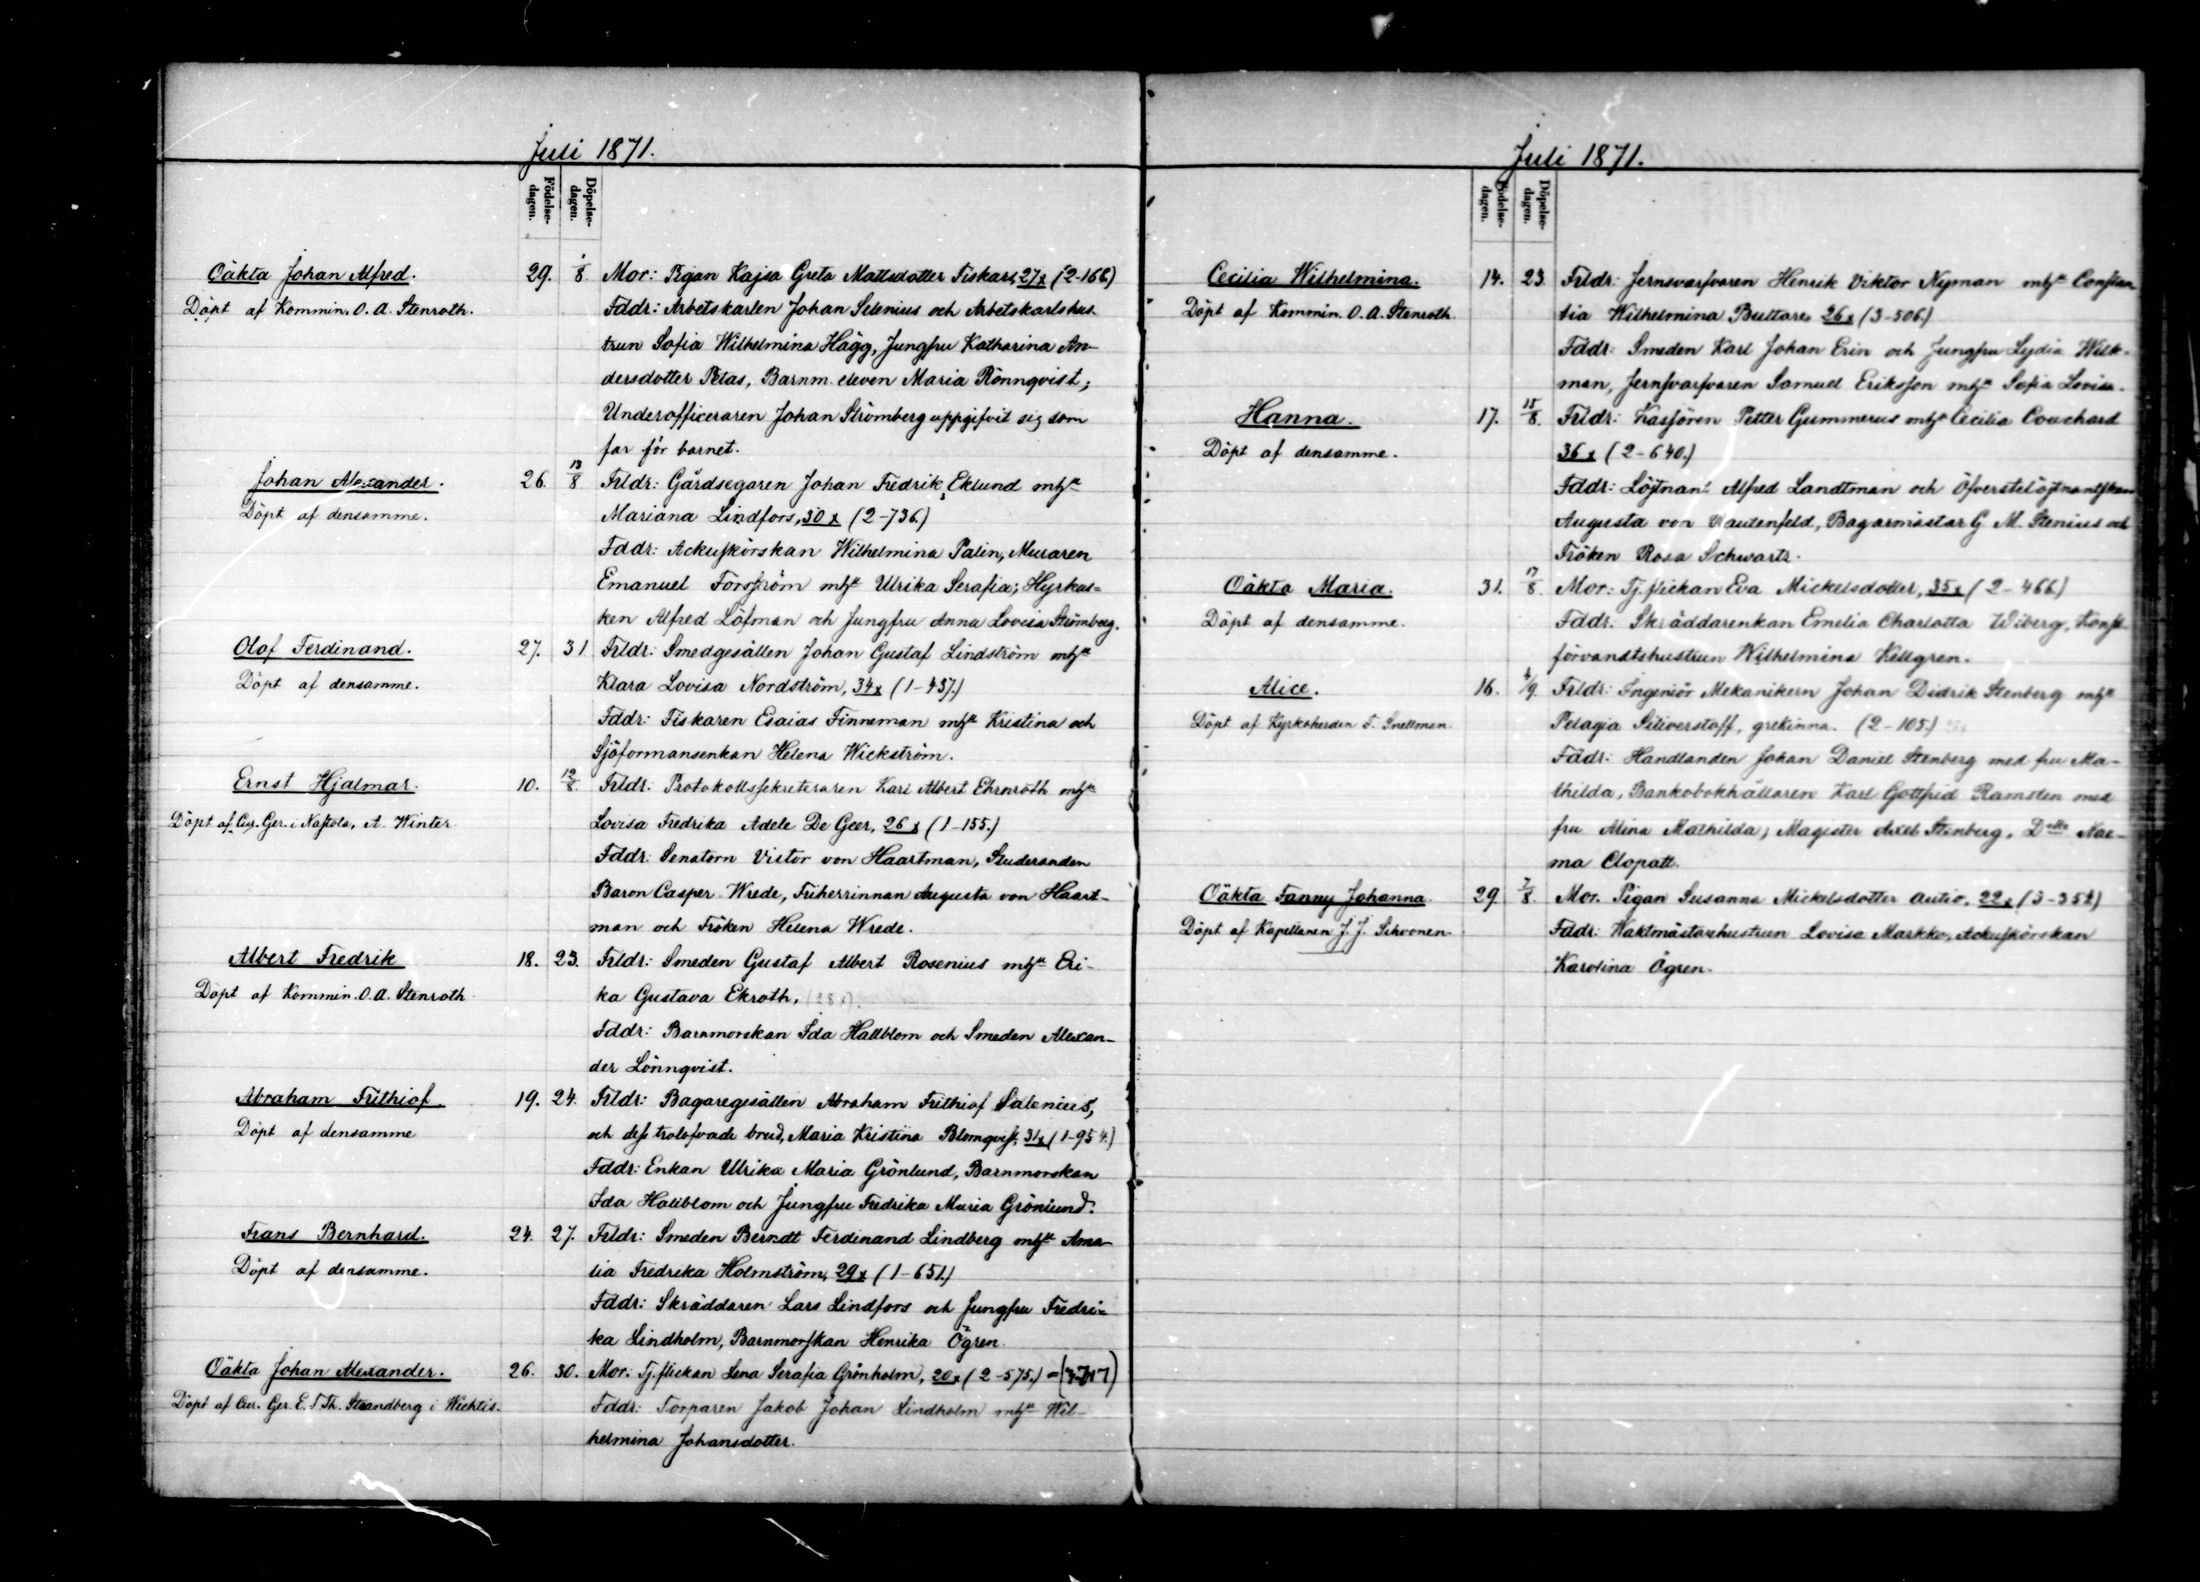 Juli 1871.
Födelse-
dagen.
Döpelse-
dagen.
Oäkta Johan Alfred.
Döpt af Kommin. O. A. Stenroth.
29. 1/8
Mor: Pigan Kajsa Greta Mattsdotter Fiskars, 27x (2-166)
Fddr: Arbetskarlen Johan Selenius och Arbetskarlshus-
trun Sofia Wilhelmina Hägg, Jungfru Katharina An-
dersdotter Petas, Barnm. eleven Maria Rönnqvist;
Underofficeraren Johan Strömberg uppgifvit sig som
far för barnet.
Johan Alexander.
Döpt af densamme.
26. 13/8
Frldr: Gårdsegaren Johan Fredrik Eklund mhu
Mariana Lindfors, 30x (2-736)
Fddr: Ackuskörskan Wilhelmina Palin, Muraren
Emanuel Forsström mhu Ulrika Serafia; Hyrkus-
ken Alfred Löfman och Jungfru Anna Lovisa Strömberg.
Olof Ferdinand.
Döpt af densamme.
27. 31
Frldr: Smedgesällen Johan Gustaf Lindström mhu
Klara Lovisa Nordström, 34x (1-437.)
Fddr: Fiskaren Esaias Finneman mhu Kristina och
Sjöformansenkan Helena Wickström.
Ernst Hjalmar.
Döpt af Cur. Ger. i Nastola, A. Winter.
10. 12/8
Frldr: Protokollssekreteraren Karl Albert Ehrnroth mhu
Lovisa Fredrika Adele De Geer, 26x (1-155.)
Fddr: Senatorn Victor von Haartman, Studeranden
Baron Casper Wrede, Friherrinnan Augusta von Haart-
man och Fröken Helena Wrede.
Albert Fredrik
Döpt af Kommin. O. A. Stenroth
18. 23.
Frldr: Smeden Gustaf Albert Rosenius mhu Eri-
ka Gustava Ekroth, (28x).
Fddr: Barnmorskan Ida Hallblom och Smeden Alexan-
der Lönnqvist.
Abraham Frithiof
Döpt af densamme
19. 24.
Frldr: Bagaregesällen Abraham Frithiof Salenius,
och dess trolofvade brud, Maria Kristina Blomqvist, 31x (1-954.)
Fddr: Enkan Ulrika Maria Grönlund, Barnmorskan
Ida Hallblom och Jungfru Fredrika Maria Grönlund.
Frans Bernhard.
Döpt af densamme.
24. 27.
Frldr: Smeden Berndt Ferdinand Lindberg mhu Ama-
lia Fredrika Holmström, 29x (1-651.)
Fddr: Skräddaren Lars Lindfors och Jungfru Fredri-
ka Lindholm, Barnmorskan Henrika Ögren.
Oäkta Johan Alexander.
Döpt af Cur. Ger. E. T. Th. Strandberg i Wichtis.
26. 30.
Mor: Tj. flickan Lena Serafia Grönholm, 20x (2-575.) =
Fddr: Torparen Jakob Johan Lindholm mhu Wil-
helmina Johansdotter.
Juli 1871.
Födelse-
dagen.
Döpelse-
dagen.
Cecilia Wilhelmina.
Döpt af Kommin. O. A. Stenroth
14. 23
Frldr: Jernsvarfvaren Henrik Viktor Nyman mhu Constan
tia Wilhelmina Bultare 26x (3-506.)
Fddr: Smeden Karl Johan Erin och Jungfru Lydia Wilk-
man, Jernsvarfvaren Samuel Eriksson mhu Sofia Lovisa.
Hanna.
Döpt af densamme.
17. 15/8.
Frldr: Kassören Petter Gummerus mhu Cecilia Couchard
36x (2-640.)
Fddr: Löjtnant Alfred Landtman och Öfverstelöjtnantskan
Augusta von Rautenfeld, Bagarmästar G. M. Stenius och
Fröken Rosa Schwartz.
Oäkta Maria.
Döpt af densamme.
31. 17/8.
Mor: Tj. flickan Eva Mickelsdotter, 35x (2-466.)
Fddr: Skräddarenkan Emelia Charlotta Wiberg, Konst-
förvandtshustrun Wilhelmina Kellgren.
Alice.
Döpt af Kyrkoherden F. Snellman.
16. 4/9.
Frldr: Ingeniör Mekanikern Johan Didrik Stenberg mhu
Pelagia Siliverstoff, grekinna. (2-105.)
Fddr: Handlanden Johan Daniel Stenberg med fru Ma-
thilda, Bankobokhållaren Karl Gottfrid Ramsten med
fru Alina Mathilda; Magister Axel Stenberg, Dlle Nae-
ma Clopatt.
Oäkta Fanny Johanna.
Döpt af Kapellanen J. J. Sihvonen
29 7/8.
Mor. Pigan Susanna Mickelsdotter Autio. 22x (3-352)
Fddr: Waktmästarehustrun Lovisa Markko, Ackuskörskan
Karolina Ögren.